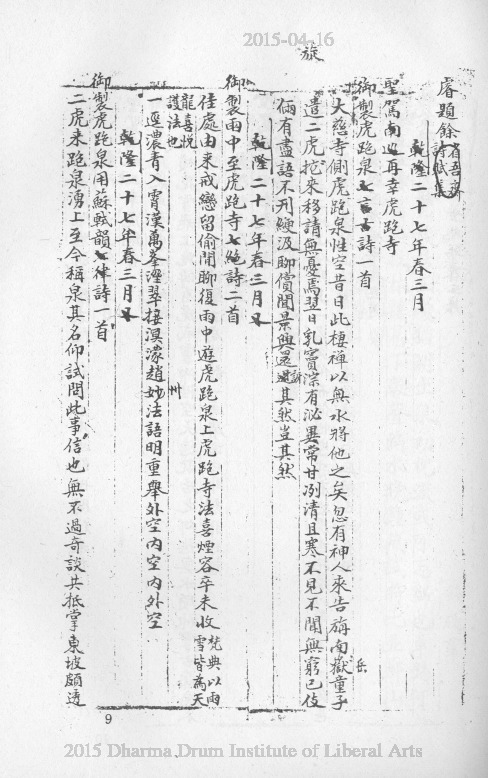 2015-04-16
旅
睿題餘省吾齋詩賦集
乾隆二十七年春三月
聖駕南巡再幸虎跑寺
御製虎跑泉七言古詩一首
大慈寺側虎跑泉性空昔日此棲禪以無水將他之矣忽有神人來告旃南嶽童子
岳
遣二虎挖來移請無憂焉翌日乳竇淙有泌異常甘冽清且寒不見不聞無窮已伎
倆有盡語不刊綆汲聊償聞景興還訝其然豈其然
乾隆二十七年春三月又
御製雨中至虎跑寺七絶詩二首
佳處由來戒戀留偷閒聊復雨中遊虎跑泉上虎跑寺法喜煙容卒未收梵典以雨雪皆為天
龍喜悅護法也
一逕濃青入霄漢萬峯溼翠接溟濛趙州妙法語明重舉外空內空內外空
乾隆二十七年春三月又
御製虎跑泉用蘇軾韻七律詩一首
二虎來跑泉湧上至今稱泉其名仰試問此事信也無不過奇談共抵掌東坡頗透
9
2015 Dharma Drum Institute of Liberal Arts